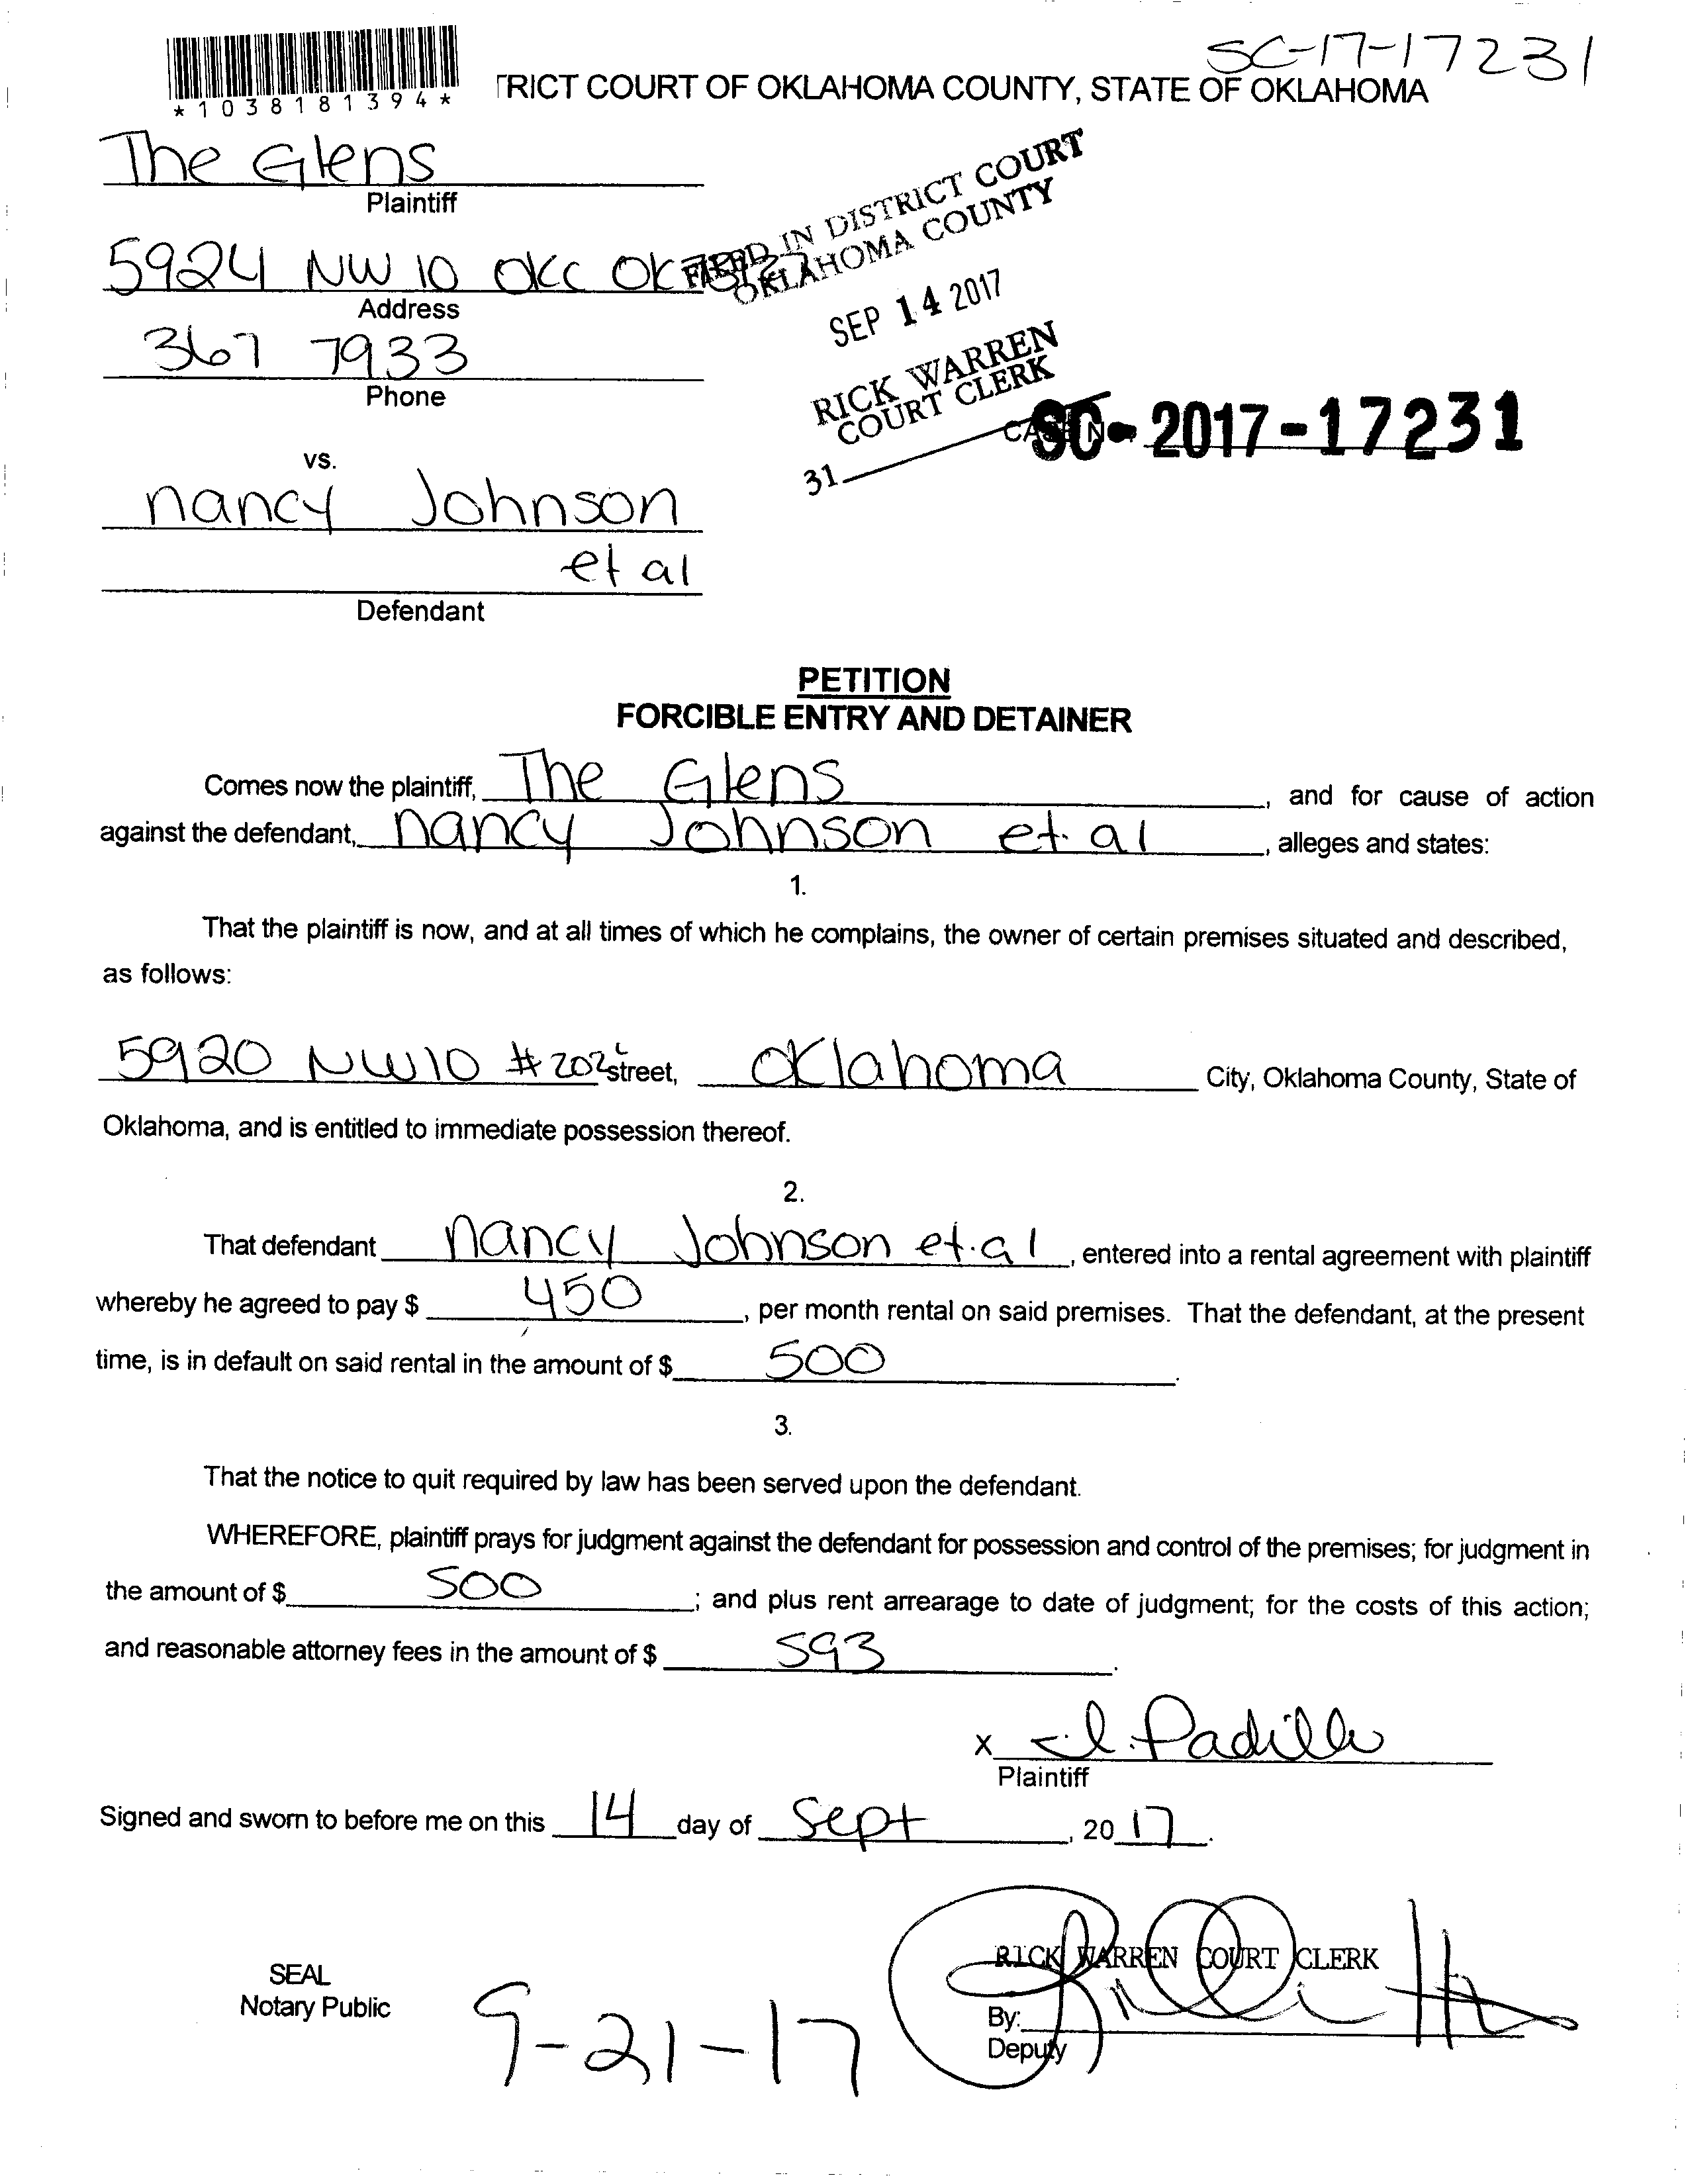 SC-17-17231
*1038181394*
TRICT COURT OF OKLAHOMA COUNTY, STATE OF OKLAHOMA
The Glens
Plaintiff
FILED IN DISTRICT COURT
OKLAHOMA COUNTY
5924 NW 10 OKC OK
Address
SEP 14 2017
367 7933
Phone
RICK WARREN
COURT CLERK
SC-2017-17231
31
vs.
nancy Johnson
et al
Defendant
PETITION
FORCIBLE ENTRY AND DETAINER
Comes now the plaintiff, The Glens, and for cause of action
against the defendant, nancy Johnson et. al, alleges and states:
1.
That the plaintiff is now, and at all times of which he complains, the owner of certain premises situated and described,
as follows:
5920 NW10 #202 street, Oklahoma City, Oklahoma County, State of
Oklahoma, and is entitled to immediate possession thereof.
2.
That defendant nancy Johnson et.al, entered into a rental agreement with plaintiff
whereby he agreed to pay $ 450, per month rental on said premises. That the defendant, at the present
time, is in default on said rental in the amount of $ 500.
3.
That the notice to quit required by law has been served upon the defendant.
WHEREFORE, plaintiff prays for judgment against the defendant for possession and control of the premises; for judgment in
the amount of $ 500; and plus rent arrearage to date of judgment; for the costs of this action;
and reasonable attorney fees in the amount of $ 593.
X I. Padilla
Plaintiff
Signed and sworn to before me on this 14 day of Sept, 2017.
RICK WARREN COURT CLERK
SEAL
Notary Public
9-21-17
By:
Deputy